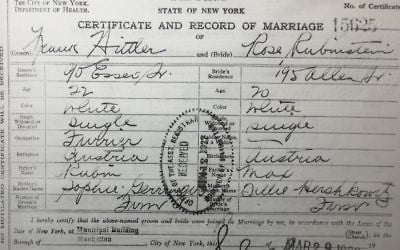 THE CITY OF NEW YORK.
DEPARTMENT OF HEALTH.
STATE OF NEW YORK
No. of Certificate
CERTIFICATE AND RECORD OF MARRIAGE 15625
OF
(Groom) Frank Hitler and (Bride) Rose Rubinstein
Groom's Residence 90 Essex St. Bride's Residence 195 Allen St.
Age 22 Age 20
Color white Color white
Single, Widowed or Divorced single Single, Widowed or Divorced single
Occupation Furrier Occupation
Birthplace Austria Birthplace Austria
Father's Name Rubin Father's Name Max
Mother's Maiden Name Sophie Mother's Maiden Name Hershkowitz
First First
I hereby certify that the above-named groom and bride were joined in Marriage by me, in accordance with the Laws of the
State of New York, at Municipal Building (Street) (Church),
Manhattan City of New York, this MAR 29 19